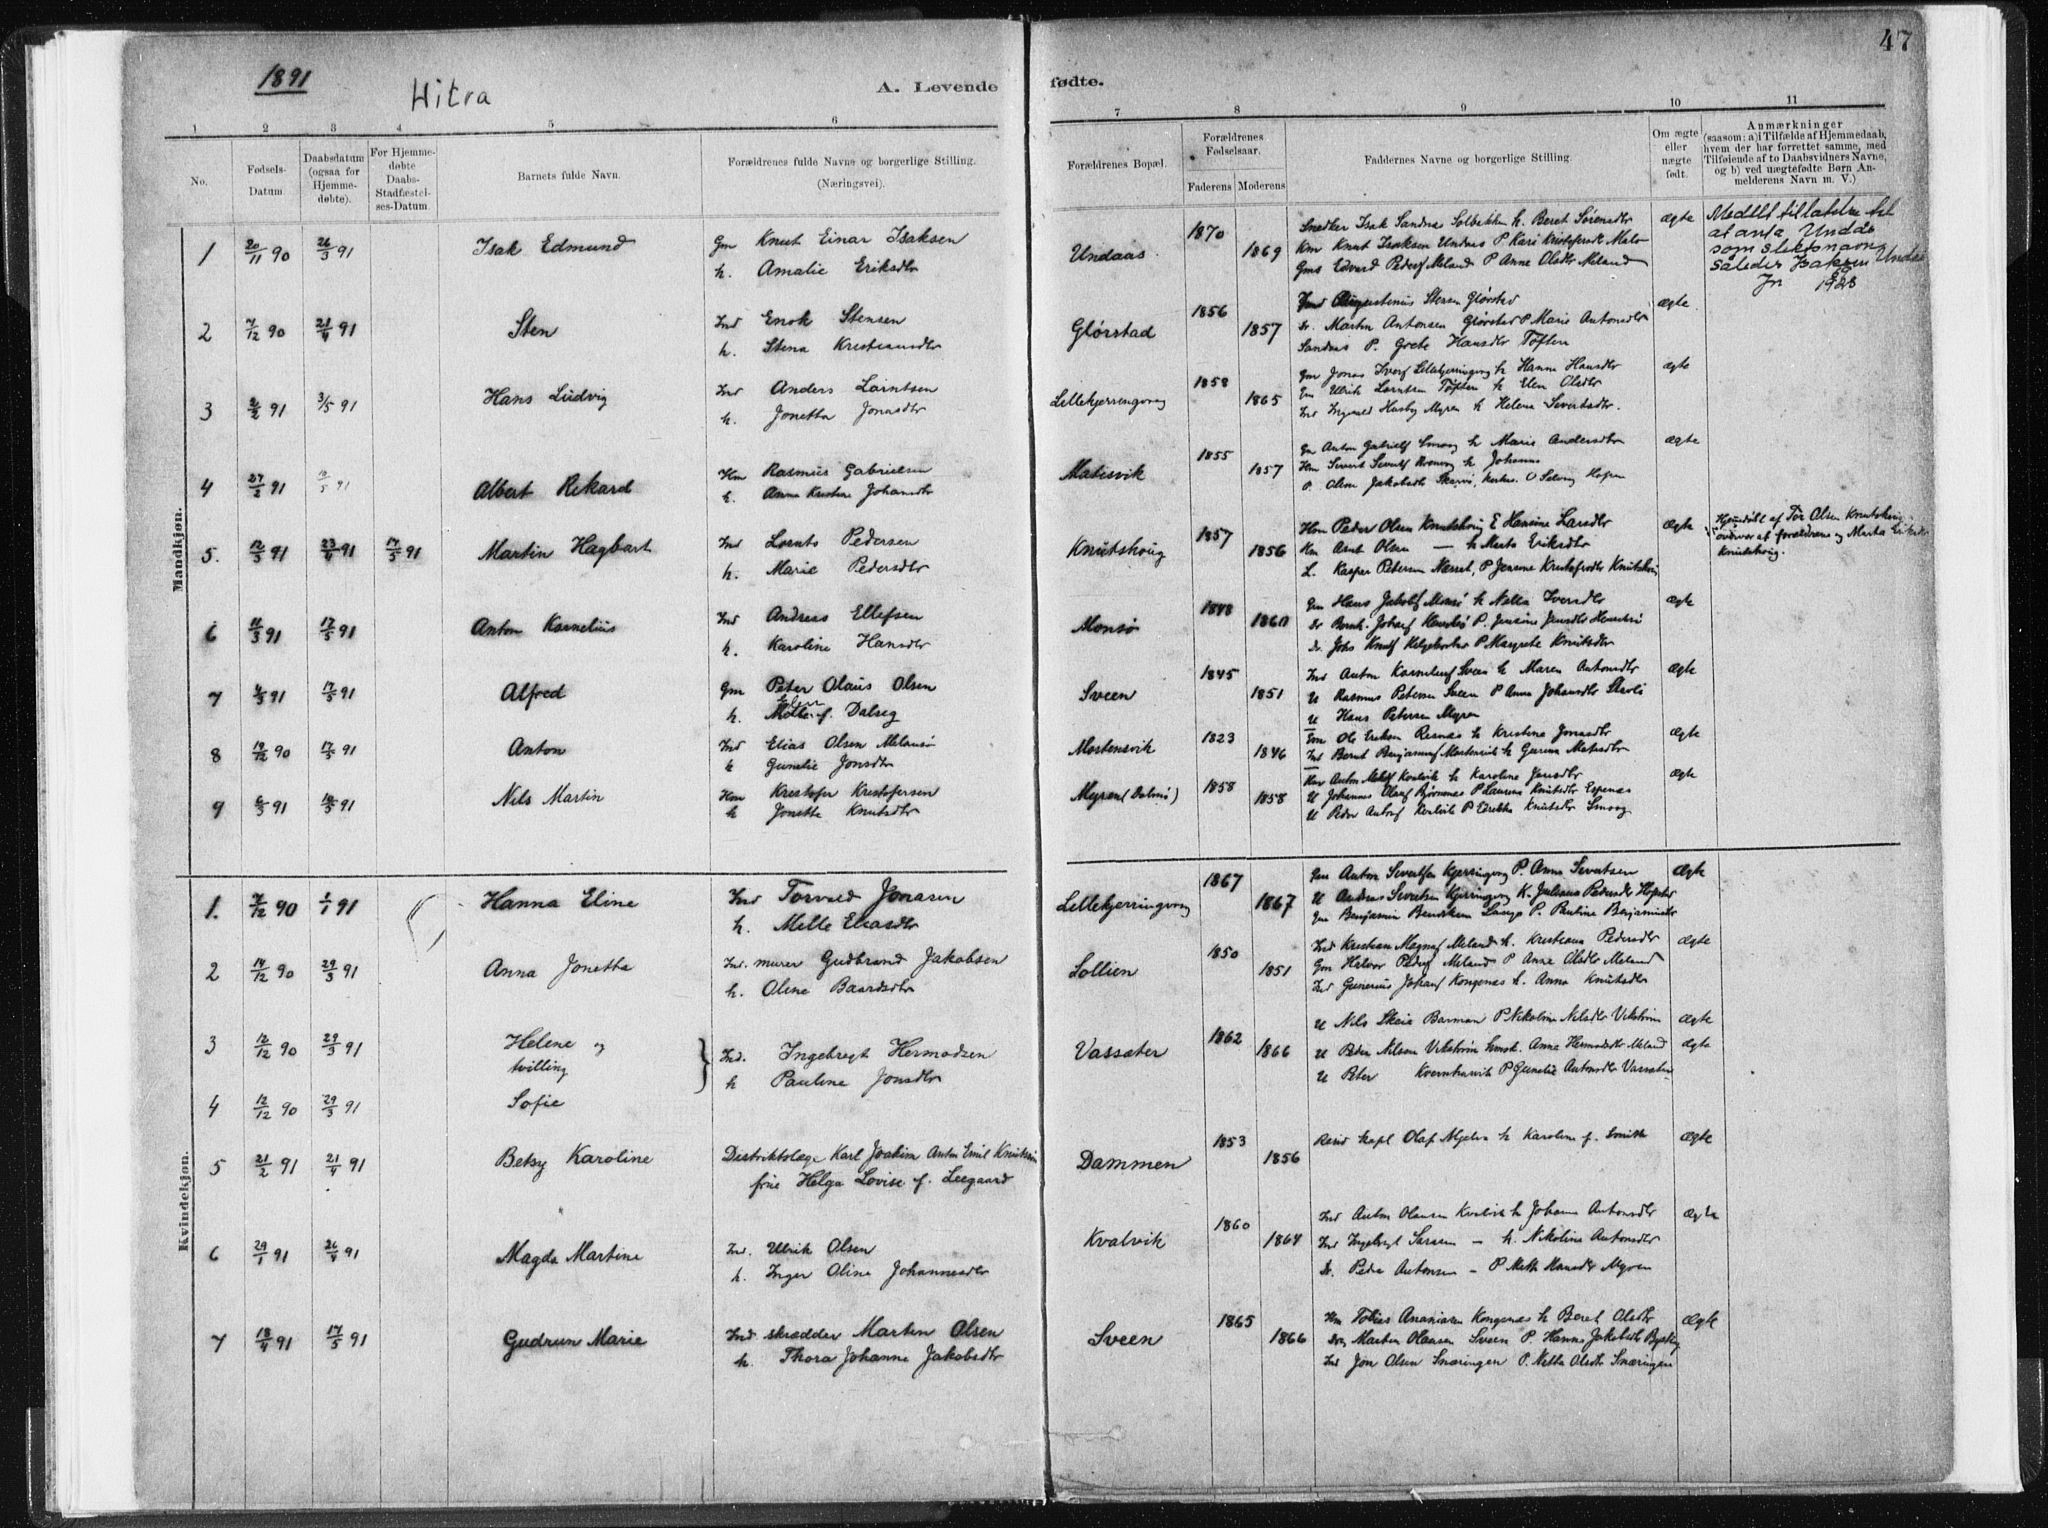 47
1891
Hitra
A. Levende fødte.
1 2 3 4 5 6 7 8 9 10 11
No.
Fødsels-Datum
Daabsdatum (ogsaa for Hjemmedøbte).
For Hjemmedøbte Daabs-Stadfæstelses-Datum.
Barnets fulde Navn.
Forældrenes fulde Navne og borgerlige Stilling. (Næringsvei).
Forældrenes Bopæl.
Forældrenes Fødselsaar.
Faderens Moderens
Faddernes Navne og borgerlige Stilling.
Om ægte eller uægte født.
Anmærkninger (saasom: a) i Tilfælde af Hjemmedaab, hvem der har forrettet samme, med Tilføiende af to Daabsvidners Navne, og b) ved uægtefødte Børn Anmelderens Navn m. V.)
Mandkjøn.
1 20/11 90 26/3 91 Isak Edmund Gm Knut Einar Isaksen
h. Amalie Eriksdtr
Undaas 1870 1869
Snedker Isak Sandnes Solbakken h. Beret Sørensdtr
Gms Edvard Pedersf Meland P Anne Olsdtr Meland
ægte
Meddelt tillatelse til
at anta Undås
som slektsnavn
således Isaksen Undås
1928
2 7/12 90 21/4 91 Sten Ind Enok Stensen
h. Stena Kristiansdtr
Glørstad 1856 1857
Augustinius Stensen Glørstad
Dr. Martin Antonsen Glørstad P Marie Antonsdtr
Sandnes P. Grete Hansdtr Toften
ægte
3 2/2 91 3/5 91 Hans Ludvig Ind Anders Larntsen
h. Jonetha Jonasdtr
Lillekjerringvog 1858 1865
Gm Jonas Iversf Lillekjerringvog h Hanne Hansdtr
Gm Ulrik Larntsen Toften h Elen Olsdtr
Ind Ingvald Husby Myren h Helena Sivertsdtr.
ægte
4 27/2 91 91 Albert Rikard Hm Rasmus Gabrielsen
h. Anna Kristine Johansdtr
Matisvik 1855 1857
Gm Anton Gabrielsf Smaag h Marie Andersdtr
P. Oline Jakobsdtr
ægte
5. 12/3 91 23/6 91 17/5 91 Martin Hagbart Ind Lornts Pedersen
h. Marie Pedersdtr
Knutshoug 1857 1856
Hm Peder Olsen Knutshoug E Hansine Larsdtr
Hm Arnt Olsen — h Marta Eriksdtr
L. Kasper Petersen Næsset, P Jensine Kristofersdtr Knutshoug
ægte
Hjemdøbt af Tør Olsen Knutshoug
overver af forældrene og Marta Eriksdtr
Knutshoug.
6 11/3 91 17/5 91 Anton Kornelius Ind Andreas Ellefsen
h. Karoline Hansdtr
Monsø 1848 1860
Gm Hans Jakobsf Monsø h Netta Iversdtr
P Margrete Knutsdtr
ægte
7 4/3 91 17/5 91 Alfred Gm Peter Olaus Olsen
h. Elen Molle f. Dalseg
Sveen 1845 1851
Ind Anton Korneliusf Sveen h Maren Antonsdtr
U Rasmus Petersen Sveen P Anna Johansdtr
U Hans Petersen Myren
ægte
8 19/12 90 17/5 91 Anton Ind Elias Olsen Melansø
h Gunelie Jonsdtr
Mortensvik 1823 1846
Gm Ole Eriksen h Kristine Jonasdtr
Ind Bernt Benjaminsf Mortensvik h Gurina Matisdtr
ægte
9 6/3 91 18/5 91 Nils Martin Hm Kristofer Kristofersen
h Jonetta Knutsdtr
Myren (Dalssø) 1858 1858
h Karoline Jonsdtr
U Johannes Olausf Bjørnnes P Laurens Knutsdtr Espenes
U Peder Antonsf Kvalvik P Edrikka Knutsdtr Smaag
ægte
Kvindekjøn.
1. 7/12 90 1/1 91 Hanna Eline Ind Torvald Jonasen
h. Melle Eliasdtr
Lillekjerringvog 1867 1867
Gm Anton Sivertsen Kjerringvog P. Anna Sivertsen
U Anders Sivertsen Kjerringvog K. Juliana Pedersdtr
Gm Benjamin Bendiksen P. Pauline Benjaminsdtr
Ægte
2 14/12 90 29/3 91 Anna Jonetha Ind. murer Gudbrand Jakobsen
h. Oline Baardsdtr
Lollien 1850 1851
Ind Kristian Magnusf Meland h. Kristiana Pedersdtr
Gm Halvor Pedersf Meland P Anne Olsdtr Meland
Ind Gunerius Johansf Kongenes h. Anna Knutsdtr
Ægte
3 12/12 90 29/3 91 Helene og
tvilling
Ind. Ingebregt Hermodsen
h Pauline Jonsdtr
Vassæter 1862 1866
U Nils Skeie Barman P Nikoline Nilsdtr Vikstrøm
U Peder Nilsen Vikstrøm hust. Anne Hermodsdtr Meland
U Peter P Gunelie Antonsdtr Vassæter
Ægte
Ægte
4 12/12 90 29/3 91 Sofie
5 21/2 91 21/4 91 Betsy Karoline Distriktslæge Karl Joakim Anton Emil Knutson
frue Helga Lovise f. Leegaard
Dammen 1853 1856
Resid kapl Olaf Mjelva h Karoline f. Smith
Ægte
6 29/1 91 26/4 91 Magda Martine Ind. Ulrik Olsen
h. Inger Oline Johannesdtr
Kvalvik 1860 1864
Ind Anton Olausen Kvalvik h Johanna Antonsdtr
Ind Ingebrigt Larsen — h. Nikoline Antonsdtr
Dr. Peder Antonsen — P Meth Hansdtr Myren
Ægte
7 18/4 91 17/5 91 Gudrun Marie Ind skrædder Martin Olsen
h. Thora Johanne Jakobsdtr
Sveen 1865 1866
Hm Tobias Ananiasen Kongenes h Beret Olsdtr
Dr Morten Olausen Sveen P. Hanna Jakobsdtr
Ind Jon Olsen Snæringen P. Netta Olsdtr Snæringen
Ægte